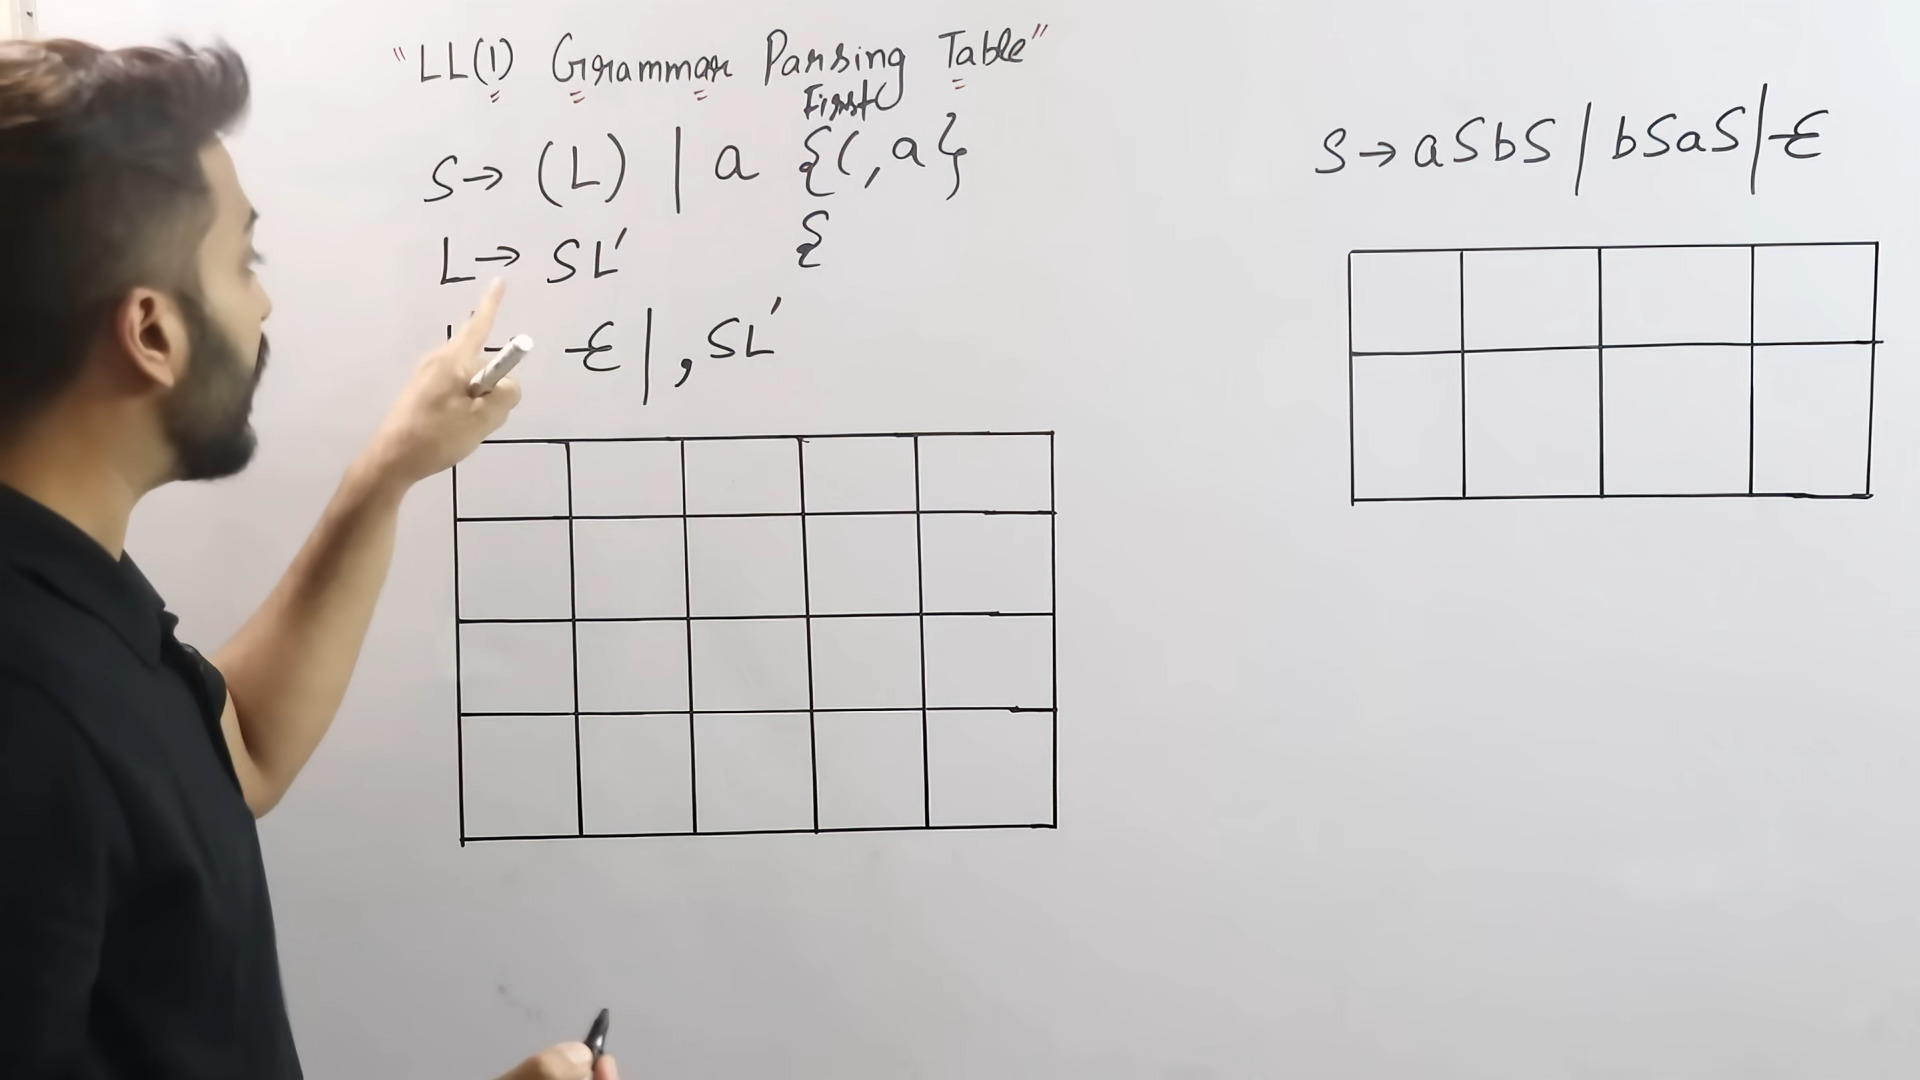 "LL(1) Grammar Parsing Table"
First
S→ (L) | a {(,a}
L→ SL' {
ε | , SL'
S→aSbS | bSaS | ε